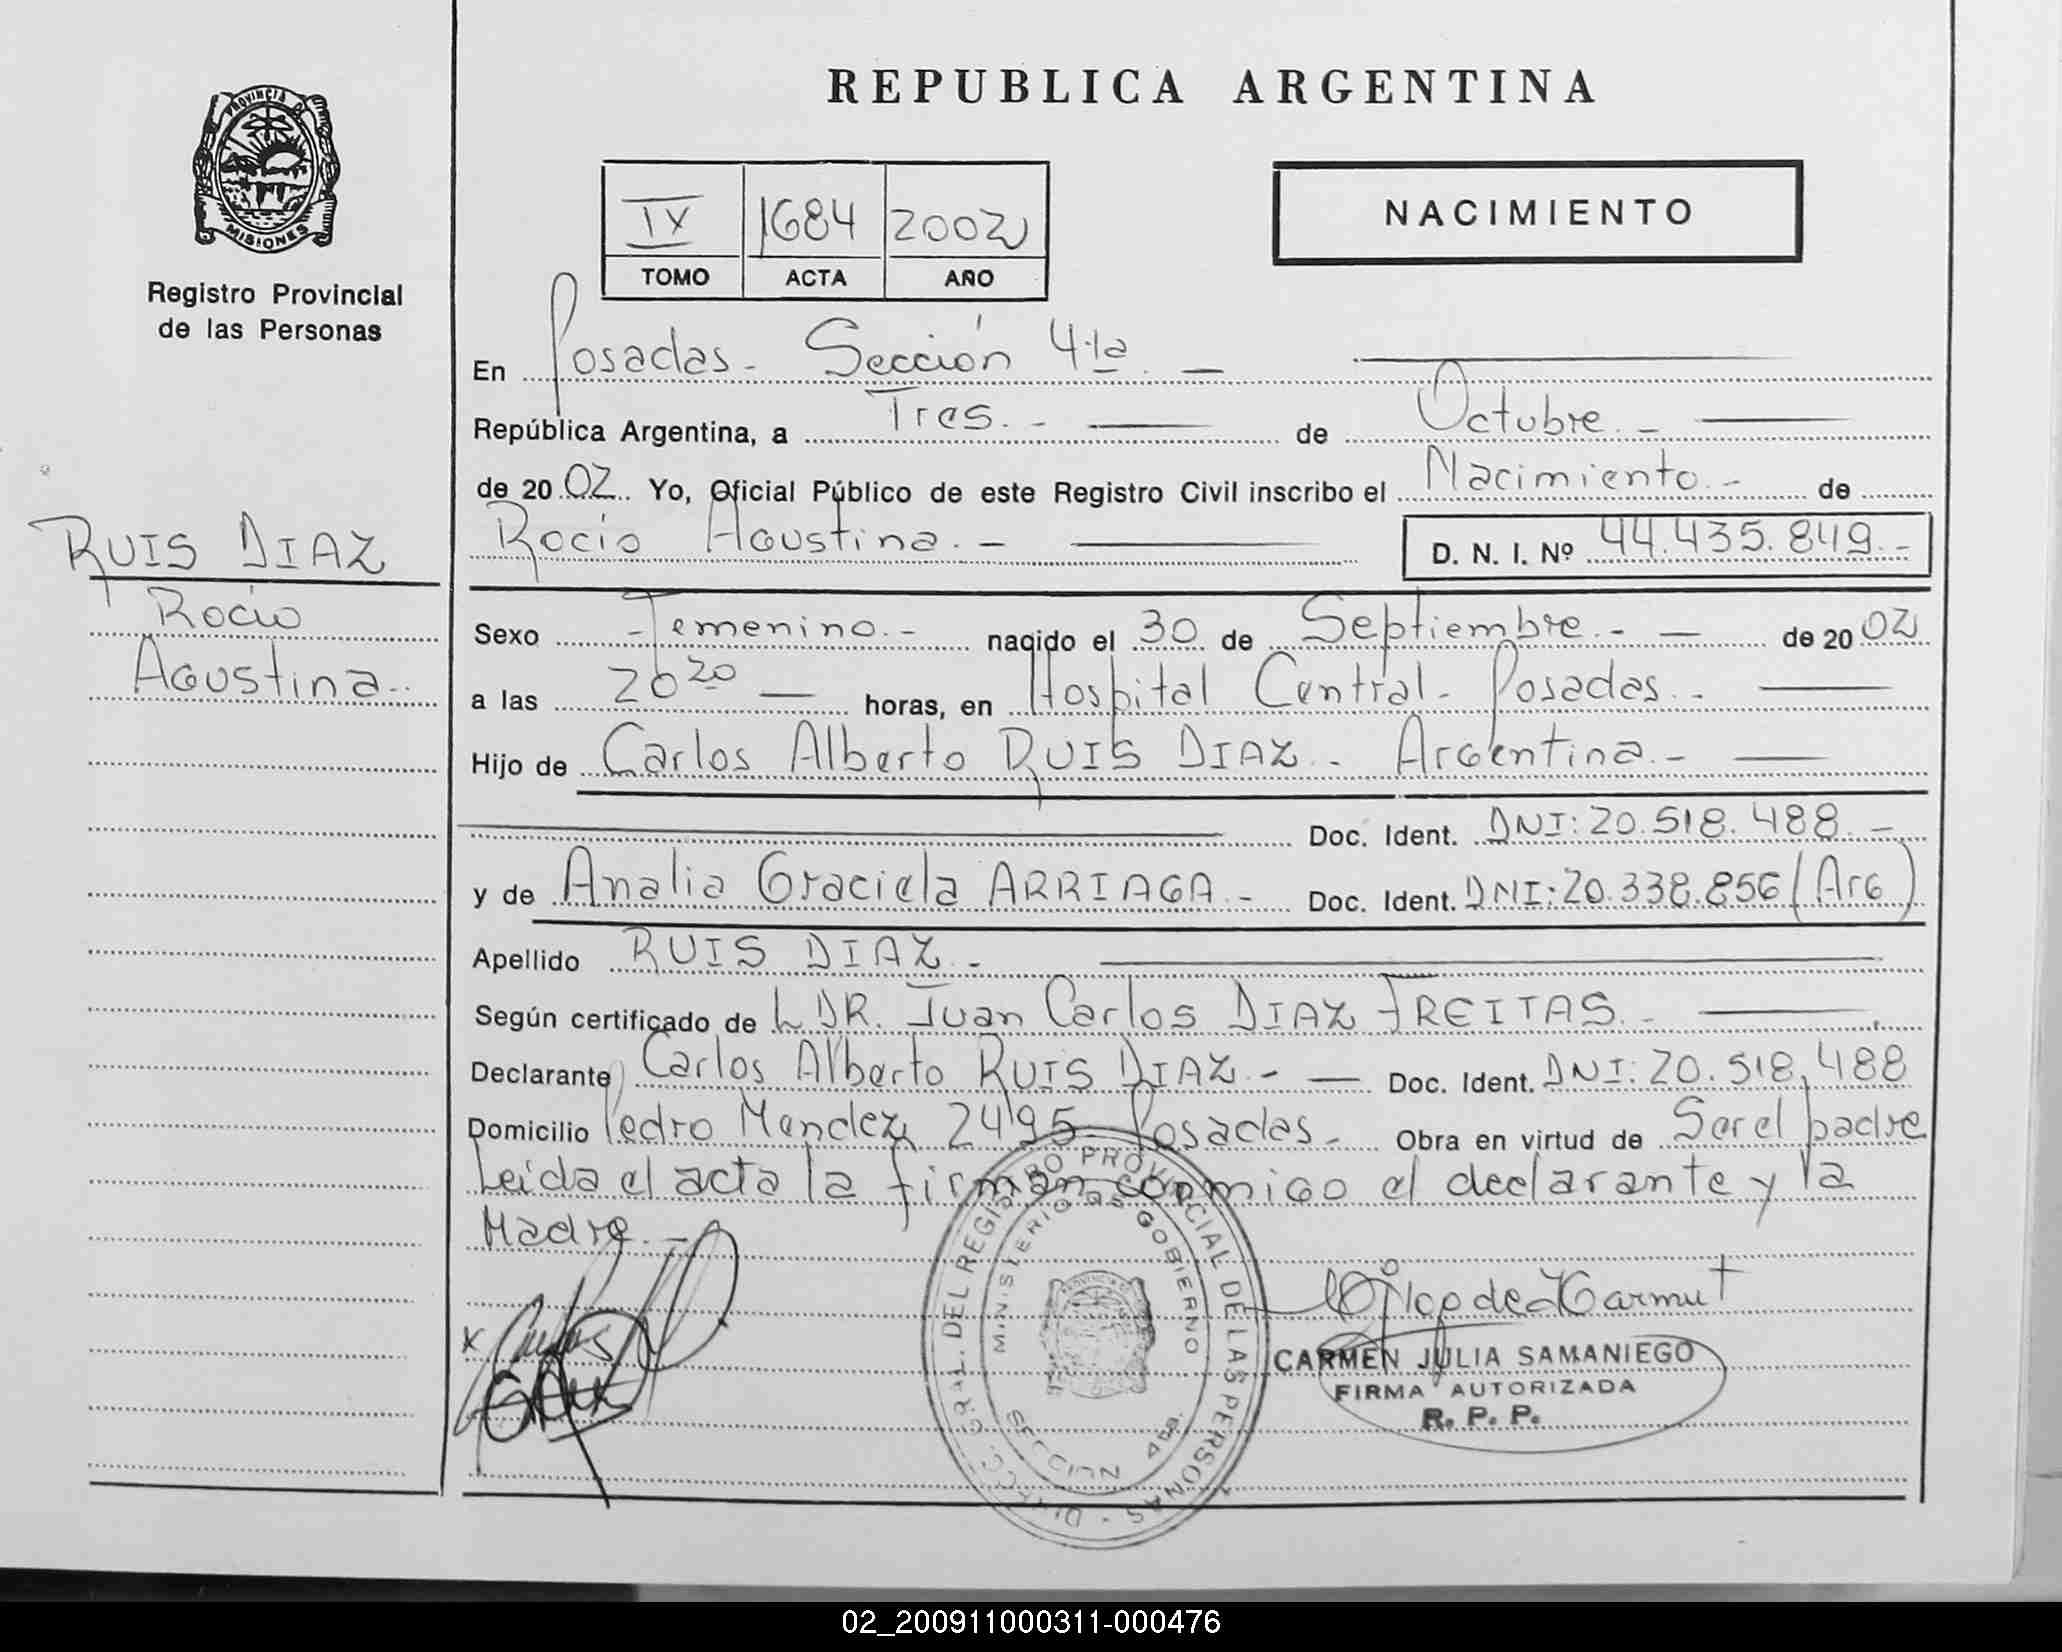 REPUBLICA ARGENTINA
PROVINCIA DE
MISIONES
Registro Provincial
de las Personas
IX 1684 2002
TOMO ACTA AÑO
NACIMIENTO
En Posadas - Sección 4ta. —
República Argentina, a Tres. - de Octubre. -
de 2002. Yo, Oficial Público de este Registro Civil inscribo el Nacimiento. - de
Rocío Agustina. - D. N. I. Nº 44.435.849. -
RUIS DIAZ
Rocío
Agustina.
Sexo Femenino. - nacido el 30 de Septiembre. - — de 2002
a las 20 20 — horas, en Hospital Central - Posadas. -
Hijo de Carlos Alberto RUIS DIAZ. - Argentina. -
Doc. Ident. DNI: 20.518.488. -
y de Analia Graciela ARRIAGA. - Doc. Ident. DNI: 20.338.856 (Arg)
Apellido RUIS DIAZ. -
Según certificado de DR. Juan Carlos DIAZ FREITAS. -
Declarante Carlos Alberto RUIS DIAZ. - — Doc. Ident. DNI: 20.518.488
Domicilio Pedro Mendez 2495 - Posadas. - Obra en virtud de Ser el padre
Leída el acta la firman conmigo el declarante y la
Madre. -
DIRECC. GRAL. DEL REGISTRO PROVINCIAL DE LAS PERSONAS -
MINISTERIO DE GOBIERNO
SECCION 4ta.
CARMEN JULIA SAMANIEGO
FIRMA AUTORIZADA
R. P. P.
02_200911000311-000476